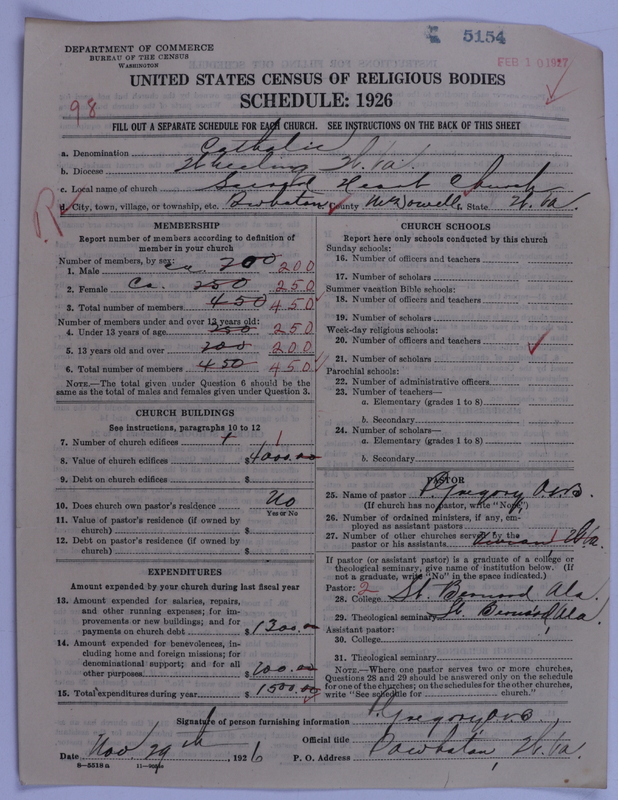 5154
FEB 10 1927
DEPARTMENT OF COMMERCE
BUREAU OF THE CENSUS
WASHINGTON
UNITED STATES CENSUS OF RELIGIOUS BODIES
SCHEDULE: 1926
98
FILL OUT A SEPARATE SCHEDULE FOR EACH CHURCH. SEE INSTRUCTIONS ON THE BACK OF THIS SHEET
a. Denomination Catholic
b. Diocese Wheeling W. Va.
c. Local name of church Sacred Heart Church
d. City, town, village, or township, etc. Powhatan County McDowell State W. Va.
MEMBERSHIP
Report number of members according to definition of
member in your church
Number of members, by sex:
1. Male ca. 200 200
2. Female Ca. 250 250
3. Total number of members 450 450
Number of members under and over 13 years old:
4. Under 13 years of age 250 250
5. 13 years old and over 200 200
6. Total number of members 450 450
NOTE.—The total given under Question 6 should be the
same as the total of males and females given under Question 3.
CHURCH BUILDINGS
See instructions, paragraphs 10 to 12
7. Number of church edifices 1 1
8. Value of church edifices $ 4000.00
9. Debt on church edifices $
10. Does church own pastor's residence? No
Yes or No
11. Value of pastor's residence (if owned by
church) $
12. Debt on pastor's residence (if owned by
church) $
EXPENDITURES
Amount expended by your church during last fiscal year
13. Amount expended for salaries, repairs,
and other running expenses; for im-
provements or new buildings; and for
payments on church debt $ 1300.00
14. Amount expended for benevolences, in-
cluding home and foreign missions; for
denominational support; and for all
other purposes $ 200.00
15. Total expenditures during year $ 1500.00
CHURCH SCHOOLS
Report here only schools conducted by this church
Sunday schools:
16. Number of officers and teachers
17. Number of scholars
Summer vacation Bible schools:
18. Number of officers and teachers
19. Number of scholars
Week-day religious schools:
20. Number of officers and teachers
21. Number of scholars
Parochial schools:
22. Number of administrative officers
23. Number of teachers—
a. Elementary (grades 1 to 8)
b. Secondary
24. Number of scholars—
a. Elementary (grades 1 to 8)
b. Secondary
PASTOR
25. Name of pastor P. Gregory O.S.B.
(If church has no pastor, write "None")
26. Number of ordained ministers, if any, em-
ployed as assistant pastors
27. Number of other churches served by the
pastor or his assistants 1 W. Va.
If pastor (or assistant pastor) is a graduate of a college or
theological seminary, give name of institution below. (If
not a graduate, write "No" in the space indicated.)
Pastor: 2
28. College St. Bernard Ala.
29. Theological seminary St. Bernard Ala.
Assistant pastor:
30. College
31. Theological seminary
NOTE.—Where one pastor serves two or more churches,
Questions 28 and 29 should be answered only on the schedule
for one of the churches; on the schedules for the other churches,
write "See schedule for church."
Signature of person furnishing information P. Gregory O.S.B.
Official title
Date Nov. 29th, 1926 P. O. Address Powhatan, W. Va.
8-5518a